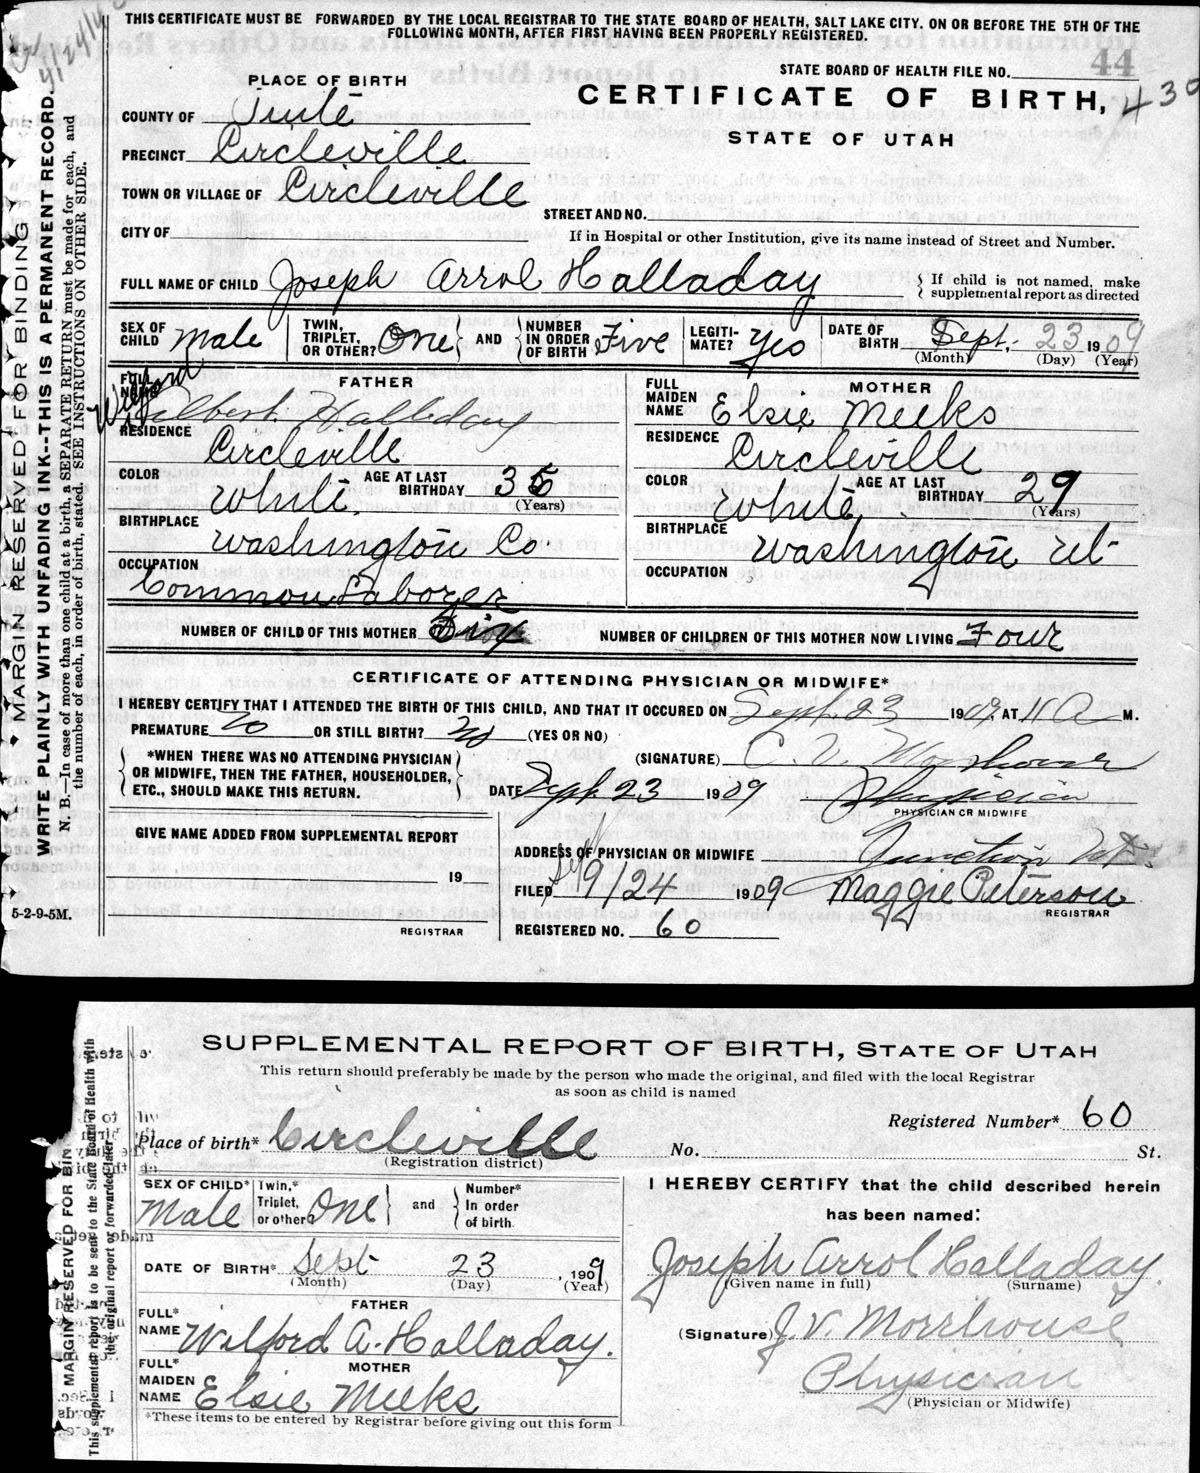 THIS CERTIFICATE MUST BE FORWARDED BY THE LOCAL REGISTRAR TO THE STATE BOARD OF HEALTH, SALT LAKE CITY, ON OR BEFORE THE 5TH OF THE
FOLLOWING MONTH, AFTER FIRST HAVING BEEN PROPERLY REGISTERED.
STATE BOARD OF HEALTH FILE NO. 44
PLACE OF BIRTH
CERTIFICATE OF BIRTH, 430
COUNTY OF Piute
STATE OF UTAH
PRECINCT Circleville
TOWN OR VILLAGE OF Circleville
STREET AND NO.
CITY OF
If in Hospital or other Institution, give its name instead of Street and Number.
FULL NAME OF CHILD Joseph Arrol Halladay
If child is not named, make
supplemental report as directed
SEX OF CHILD Male
TWIN, TRIPLET, OR OTHER? One AND NUMBER IN ORDER OF BIRTH Five
LEGITIMATE? Yes
DATE OF BIRTH Sept. 23 1909
(Month) (Day) (Year)
FATHER
FULL NAME Wilford
Wilbert Halladay
RESIDENCE Circleville
COLOR White AGE AT LAST BIRTHDAY 35 (Years)
BIRTHPLACE Washington Co.
OCCUPATION Common Laborer
MOTHER
FULL MAIDEN NAME Elsie Meeks
RESIDENCE Circleville
COLOR White AGE AT LAST BIRTHDAY 29 (Years)
BIRTHPLACE Washington Ut.
OCCUPATION
NUMBER OF CHILD OF THIS MOTHER
NUMBER OF CHILDREN OF THIS MOTHER NOW LIVING Four
CERTIFICATE OF ATTENDING PHYSICIAN OR MIDWIFE*
I HEREBY CERTIFY THAT I ATTENDED THE BIRTH OF THIS CHILD, AND THAT IT OCCURED ON Sept. 23 1909. AT 11 A M.
PREMATURE No OR STILL BIRTH? No (YES OR NO)
*WHEN THERE WAS NO ATTENDING PHYSICIAN
OR MIDWIFE, THEN THE FATHER, HOUSEHOLDER,
ETC., SHOULD MAKE THIS RETURN.
(SIGNATURE)
DATE Sept. 23 1909 Physician
PHYSICIAN OR MIDWIFE
GIVE NAME ADDED FROM SUPPLEMENTAL REPORT
19
REGISTRAR
ADDRESS OF PHYSICIAN OR MIDWIFE Junction Ut.
FILED 9/24 1909 Maggie Peterson
REGISTRAR
REGISTERED NO. 60
5-2-9-5M.
MARGIN RESERVED FOR BINDING
WRITE PLAINLY WITH UNFADING INK--THIS IS A PERMANENT RECORD.
N. B.—In case of more than one child at a birth, a SEPARATE RETURN must be made for each, and
the number of each, in order of birth, stated. SEE INSTRUCTIONS ON OTHER SIDE.
SUPPLEMENTAL REPORT OF BIRTH, STATE OF UTAH
This return should preferably be made by the person who made the original, and filed with the local Registrar
as soon as child is named
Registered Number* 60
Place of birth* Circleville No. St.
(Registration district)
SEX OF CHILD* Male
Twin,* Triplet, or other? One and Number* In order of birth
DATE OF BIRTH* Sept 23, 1909
(Month) (Day) (Year)
FATHER
FULL* NAME Wilford A. Halladay.
MOTHER
FULL* MAIDEN NAME Elsie Meeks
*These items to be entered by Registrar before giving out this form
I HEREBY CERTIFY that the child described herein
has been named:
Joseph Arrol Halladay.
(Given name in full) (Surname)
(Signature) J. V. Morrhouse
Physician
(Physician or Midwife)
MARGIN RESERVED FOR BIN
This supplemental report is to be sent to the State Board of Health with
the original report or forwarded later